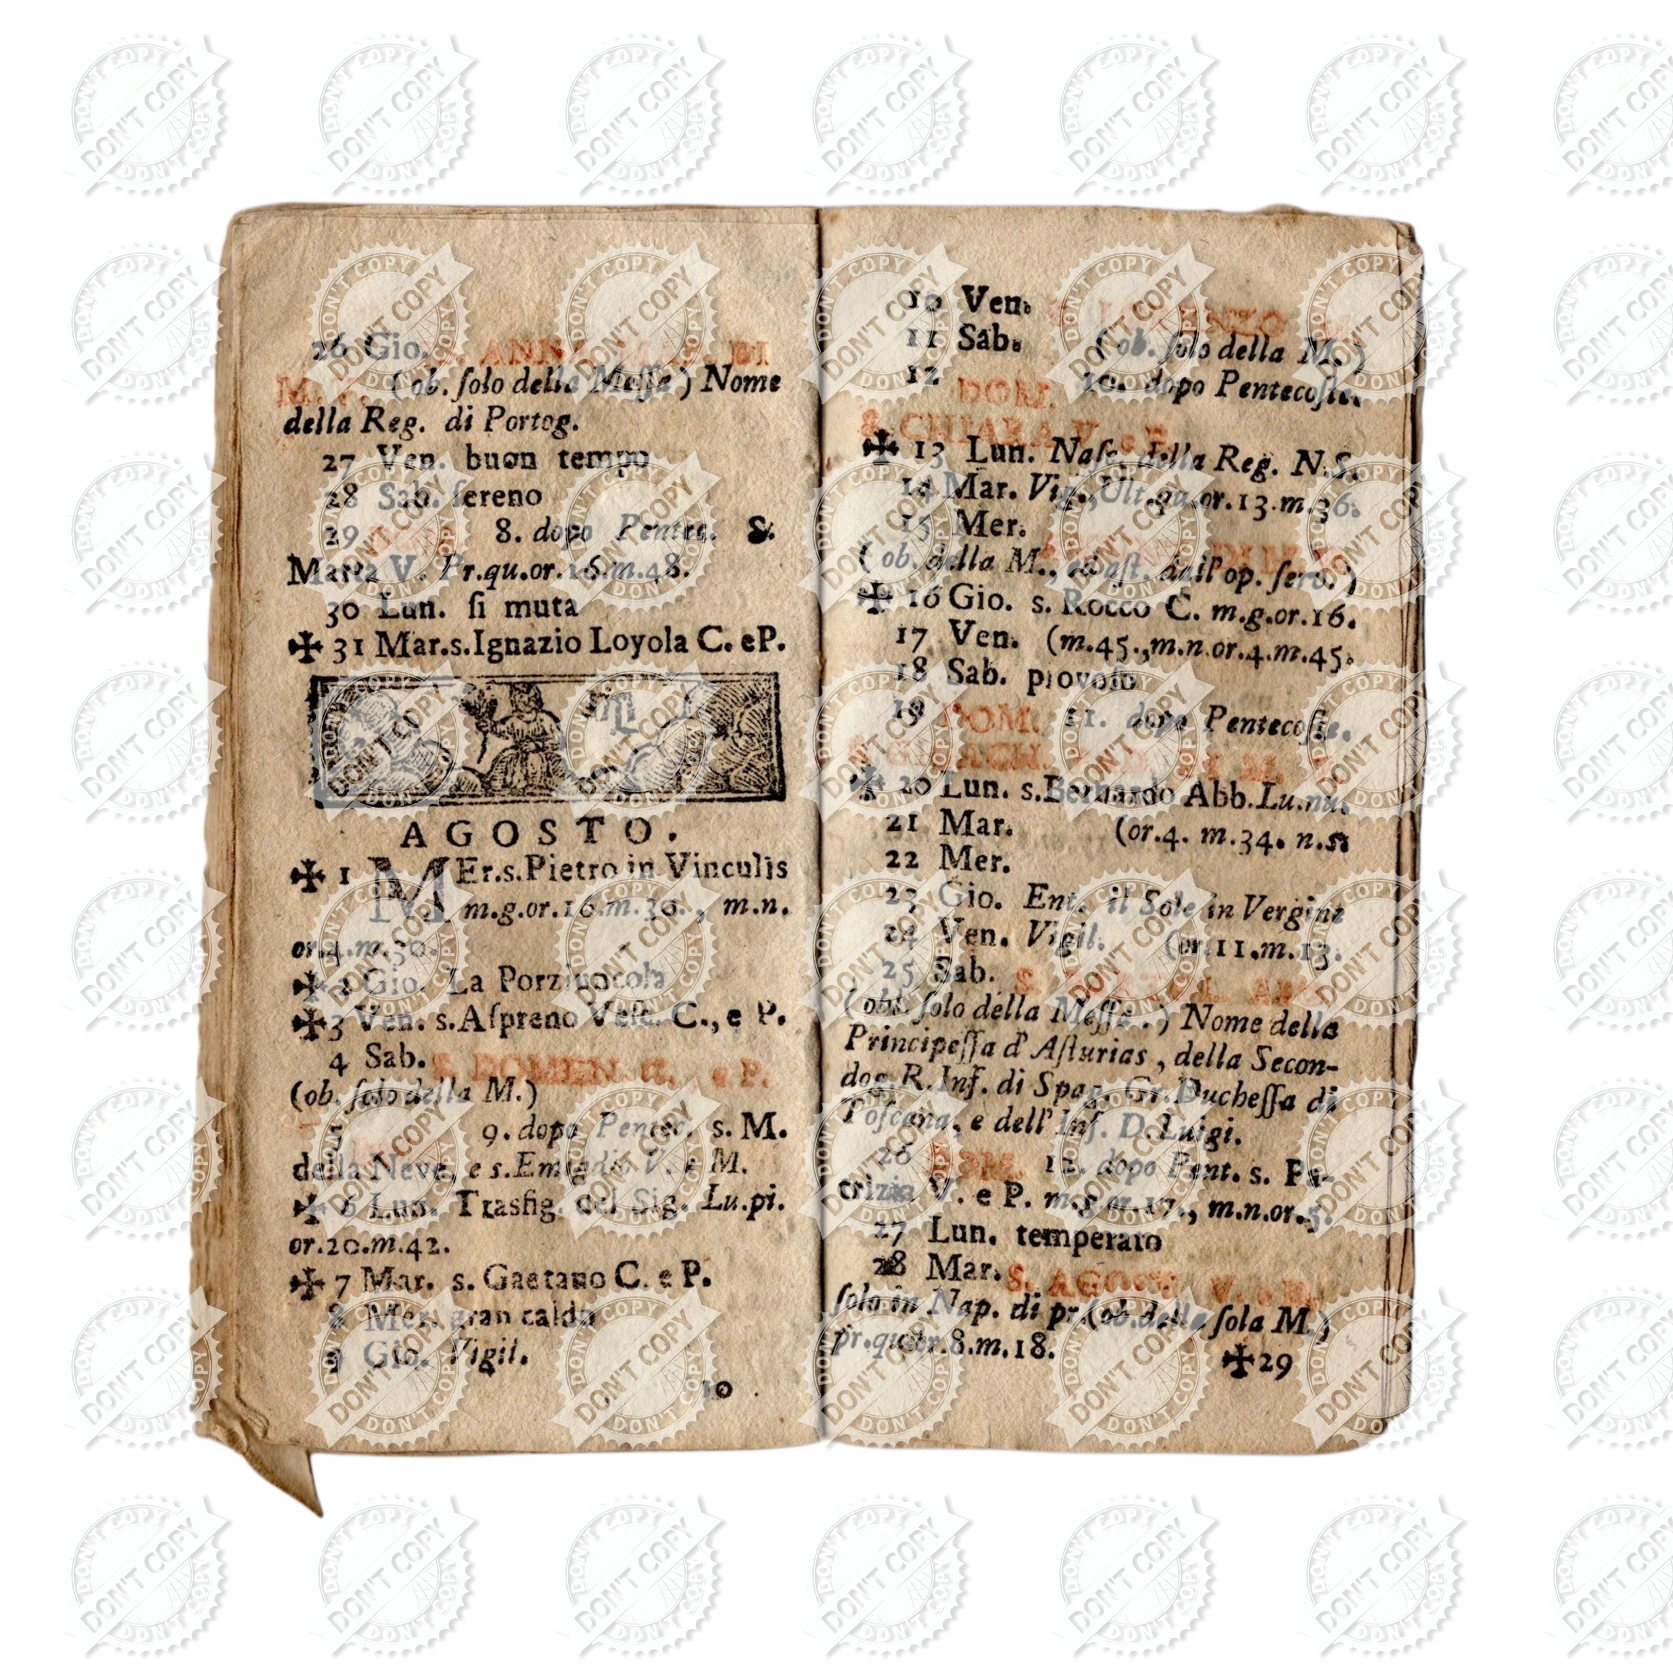 26 Gio. S. ANNA MAD. DI
M. V. (ob. ſolo della Meſſa) Nome
della Reg. di Portog.
27 Ven. buon tempo
28 Sab. ſereno
29 8. dopo Pentec. S.
Marta V. Pr.qu.or.16.m.48.
30 Lun. ſi muta
✠ 31 Mar.s.Ignazio Loyola C. eP.
AGOSTO.
✠ 1 MEr.s.Pietro in Vinculis
m.g.or.16.m.30., m.n.
or.4.m.30.
✠ 2 Gio. La Porziuncola
✠ 3 Ven. s.Aſpreno Veſc. C., e P.
4 Sab. S. DOMEN. C. e P.
(ob. ſolo della M.)
5 9. dopo Pentec. s. M.
della Neve, e s.Emigdio V. e M.
✠ 6 Lun. Trasfig. del Sig. Lu.pi.
or.20.m.42.
✠ 7 Mar. s. Gaetano C. e P.
8 Mer. gran caldo
9 Gio. Vigil.
10
10 Ven.
11 Sab. (ob. ſolo della M.)
12 DOM. 10. dopo Pentecoſte.
S. CHIARA V. e P.
✠ 13 Lun. Naſc. della Reg. N.S.
14 Mar. Vig., Ult.qu.or.13.m.36.
15 Mer.
(ob. della M., ed aſt. dall'op. ſerv.)
✠ 16 Gio. s. Rocco C. m.g.or.16.
17 Ven. (m.45.,m.n.or.4.m.45.
18 Sab. piovoſo
19 DOM. 11. dopo Pentecoſte.
✠ 20 Lun. s.Bernardo Abb.Lu.nu.
21 Mar. (or.4. m.34. n.s.
22 Mer.
23 Gio. Ent. il Sole in Vergine
24 Ven. Vigil. (or.11.m.13.
25 Sab.
(obl. ſolo della Meſſa.) Nome della
Principeſſa d'Aſturias, della Secon-
dog.R.Inf. di Spag. Gr.Ducheſſa di
Toſcana, e dell'Inf. D.Luigi.
26 DOM. 12. dopo Pent. s. Pa-
trizia V. e P. m.g.or.17., m.n.or.5.
27 Lun. temperato
28 Mar. S. AGOST. V. e D.
ſolo in Nap. di pr.(ob.della ſola M.)
pr.qu.or.8.m.18.
✠29